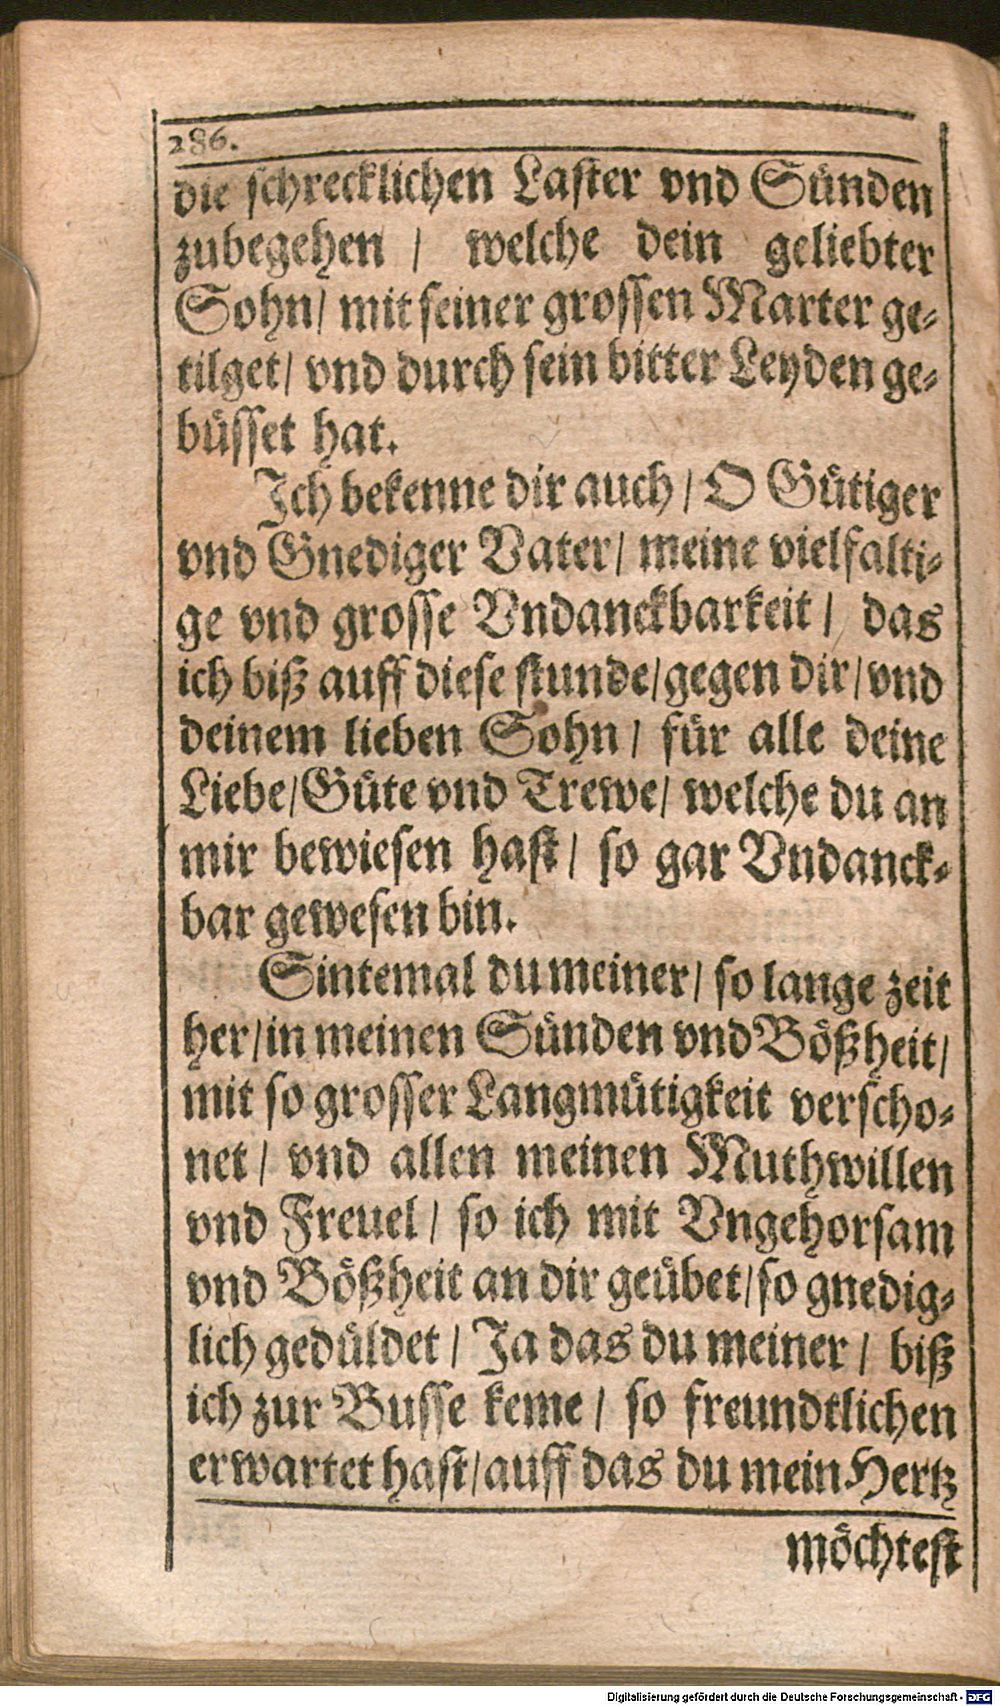 286.
die schrecklichen Laster vnd Sünden
zubegehen / welche dein geliebter
Sohn/ mit seiner grossen Marter ge-
tilget/ vnd durch sein bitter Leyden ge-
büsset hat.
Ich bekenne dir auch / O Gütiger
vnd Gnediger Vater/ meine vielfalti-
ge vnd grosse Vndanckbarkeit / das
ich biß auff diese stunde/gegen dir/vnd
deinem lieben Sohn / für alle deine
Liebe/Güte vnd Trewe/ welche du an
mir bewiesen hast / so gar Vndanck-
bar gewesen bin.
Sintemal du meiner/ so lange zeit
her/in meinen Sünden vnd Bößheit/
mit so grosser Langmütigkeit verscho-
net / vnd allen meinen Muthwillen
vnd Freuel / so ich mit Vngehorsam
vnd Bößheit an dir geübet/so gnedig-
lich gedüldet / Ja das du meiner / biß
ich zur Busse keme / so freundtlichen
erwartet hast/auff das du mein Hertz
möchtest
Digitalisierung gefördert durch die Deutsche Forschungsgemeinschaft - DFG